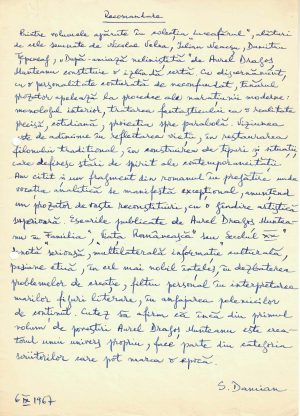 Recomandare
Printre volumele apărute în colecţia "Luceafărul", alături
de cele semnate de Nicolae Velea, Iulian Neacşu, Dumitru
Ţepeneag, "După-amiază neliniştită" de Aurel Dragoş
Munteanu constituie o izbândă certă. Cu discernământ,
cu o personalitate conturată de neconfundat, tânărul
prozator apelează la procedee ale naraţiunii moderne:
monologul interior, tratarea fantasticului cu o realitate
precisă, cotidiană, proiecţia de parabolă. Viziunea
este de adâncime în reflectarea vieţii, în restaurarea
filonului tradiţional, în construirea de tipuri şi situaţii
care definesc stări de spirit ale contemporaneităţii.
Am citit şi un fragment din romanul în pregătire, unde
vocaţia analitică se manifestă excepţional, anunţând
un prozator de vaste reconstituiri, cu o gândire artistică
superioară. Eseurile publicate de Aurel Dragoş Muntea-
nu în "Familia", "Gazeta Românească" sau "Secolul XX"
notă serioasă, multilaterală informaţie culturală,
pasiune etică, în cel mai nobil înţeles, în dezbaterea
problemelor de creaţie, filtru personal în interpretarea
marilor figuri literare, în angajarea polemicilor
de conţinut. Cutez să afirm că încă din primul
volum de povestiri Aurel Dragoş Munteanu este crea-
torul unui univers propriu, face parte din categoria
scriitorilor care pot marca o epocă.
S. Damian
6 IX 1967